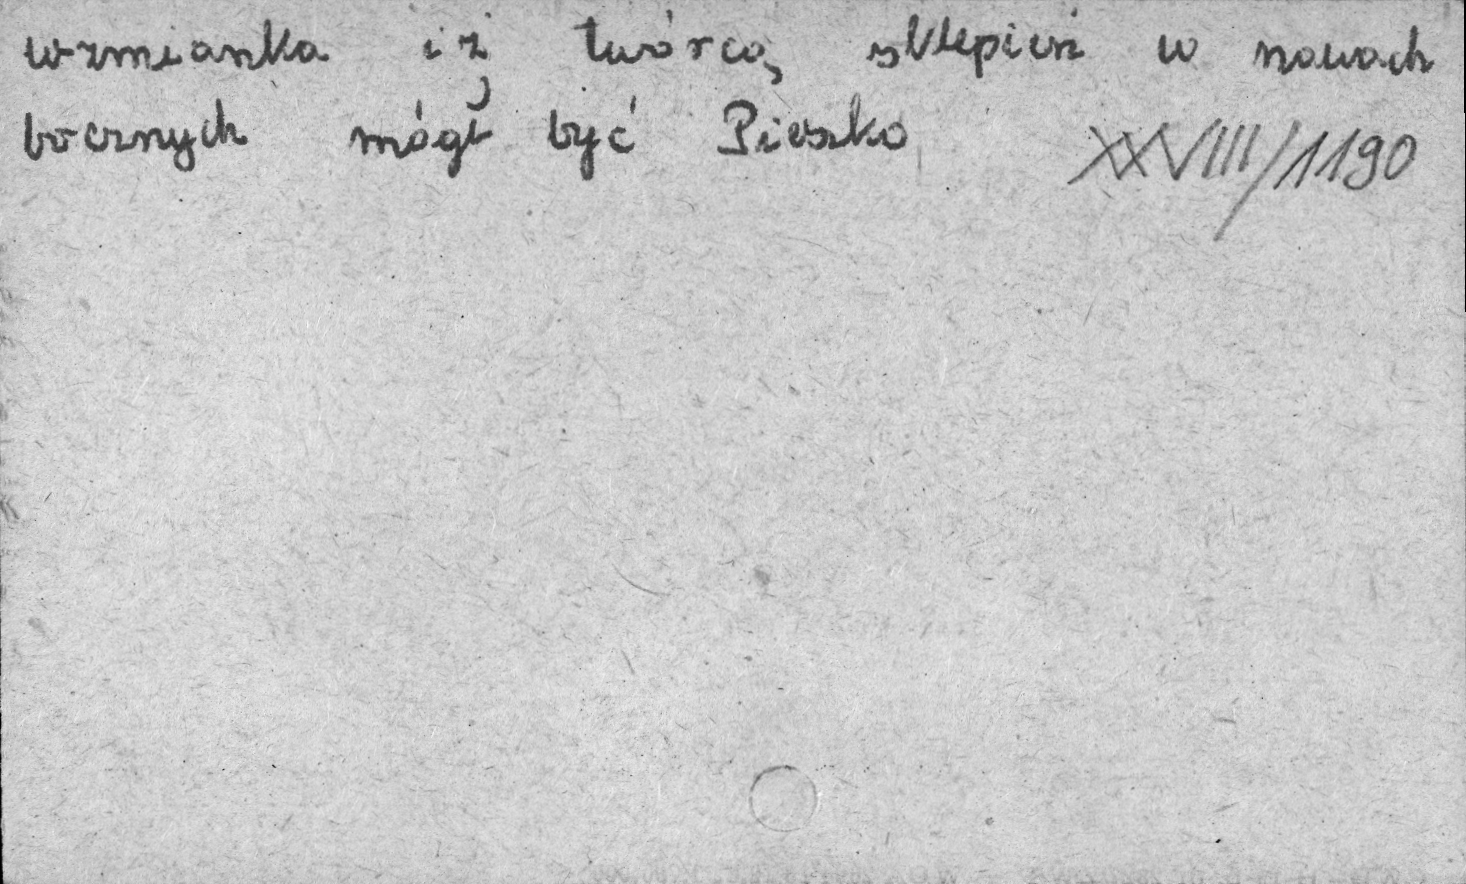 wzmianka iż twórcą sklepień w nawach
bocznych mógł być Pieszko XXVIII/1190